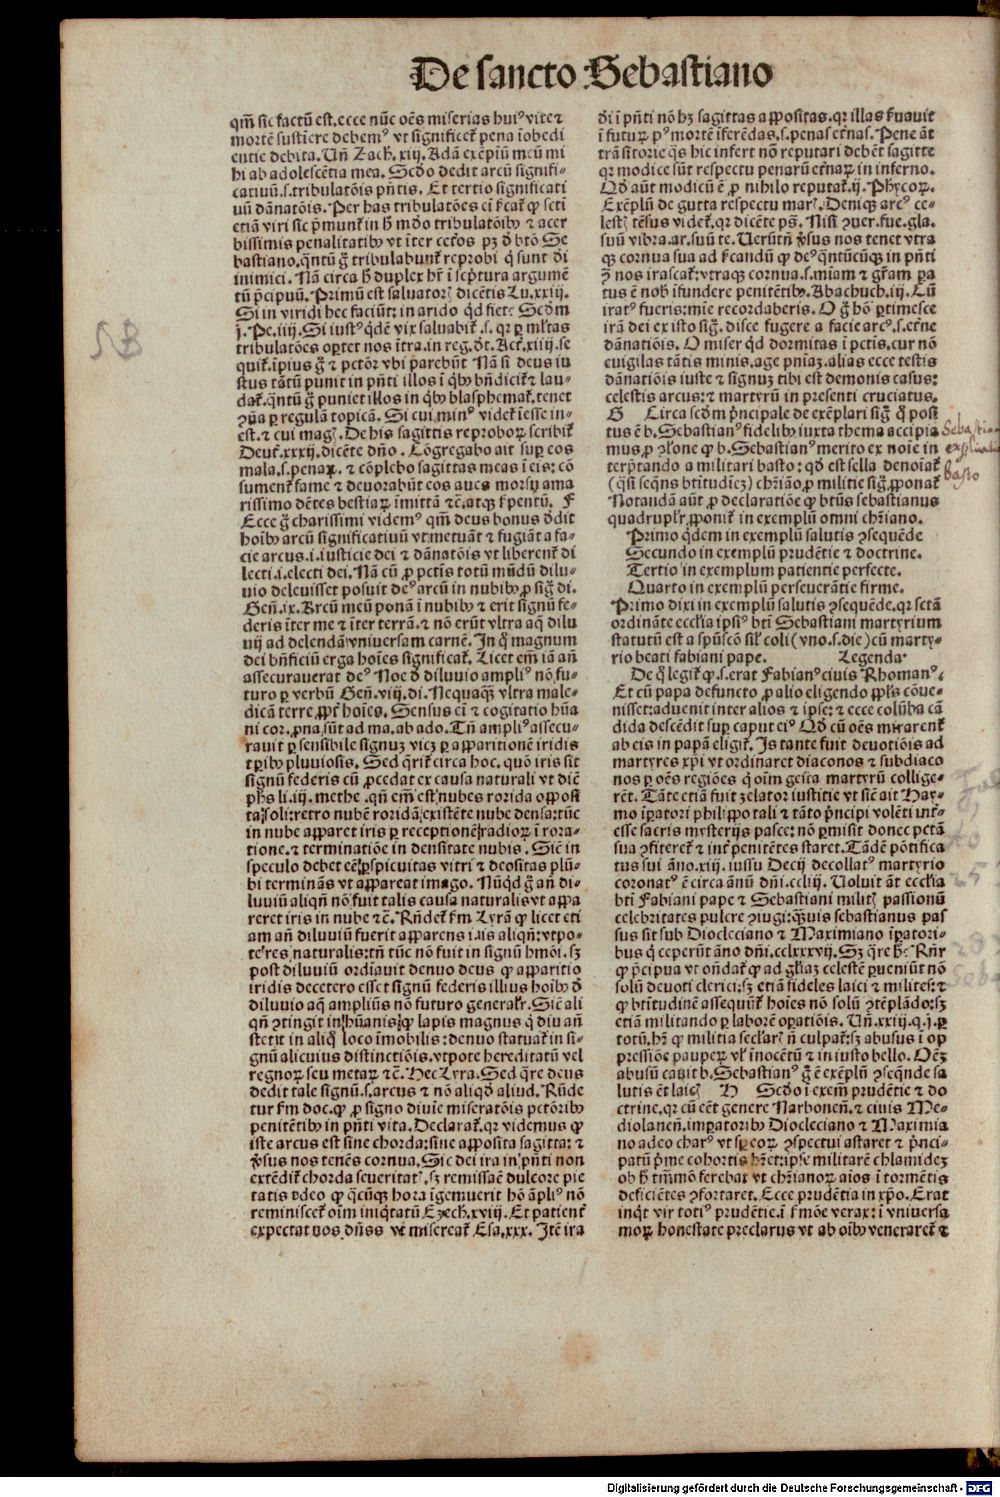 De sancto Sebastiano
qm̄ sic factū est. ecce nūc oēs miserias huiꝰ vite ⁊
mortē sustinere debemꝰ vt significet̄ pena īobedi
entie debita. Uñ Zach. xiij. Adā exēpiū meū mi
hi ab adolescētia mea. Scd̄o dedit arcū signifi-
catiuū .s. tribulatōis pn̄tis. Et tertio significati
uū dānatōis. Per has tribulatōes
etiā viri sic p̄munt̄ in h̄ mūdo tribulatōibꝫ ⁊ acer
bissimis penalitatibꝫ vt īter cet̄os pꝫ d̄ btō Se
bastiano. q̄ntū ḡ tribulabunt̄ reprobi q̄ sunt d̄i
inimici. Nā circa h̄ duplex hr̄ ī sc̄ptura argumē
tū p̄cipuū. Primū est saluatorꝭ dicētis Lu. xxiij.
Si in viridi hec faciūt: in arido qd̄ fiet: Scd̄m
j. Pe. iiij. Si iustꝰ q̄dē vix saluabit̄ .s. qꝛ ꝑ ml̄tas
tribulatōes oꝑtet nos ītra. in reg. dī. Act̄. xiiij. se
quit̄. īpius ḡ ⁊ pctōr vbi parebūt Nā si deus iu
stus tātū punit in pn̄ti illos ī qͥbꝫ bn̄dicit̄ ⁊ lau-
dat̄. q̄ntū ḡ puniet illos in qͥbꝫ blasphemat̄. tenet
ꝯña ꝑ regulā topicā. Si cui minꝰ videt̄ īesse in-
est. ⁊ cui magꝭ. De his sagittis reproboꝝ scribit̄
Deut̄. xxxij. dicēte dn̄o. Cōgregabo ait suꝑ eos
mala .s. penaꝝ. ⁊ cōplebo sagittas meas ī eis: cō
sument̄ fame ⁊ deuorabūt eos aues morsu ama
rissimo dētes bestiaꝝ īmittā ⁊c̄. F
Ecce ḡ charissimi videmꝰ qm̄ deus bonus d̄dit
hoībꝫ arcū significatiuū vt metuāt ⁊ fugiāt a fa-
cie arcus .i. iusticie dei ⁊ dānatōis vt liberent̄ di
lecti .i. electi dei. Nā cū ꝓ pctis totū mūdū dilu-
uio deleuisset posuit deꝰ arcū in nubibꝫ ꝓ sig̊ di.
Gen̄. ix. Arcū meū ponā ī nubibꝫ ⁊ erit signū fe-
deris īter me ⁊ īter terrā. ⁊ nō erūt vltra aq̄ dilu
uij ad delendā vniuersam carnē. In q̊ magnum
dei bn̄ficiū erga hoīes significat̄. Licet em̄ iā añ
assecurauerat deꝰ Noe d̄ diluuio ampliꝰ nō fu-
turo ꝑ verbū Gen̄. viij. di. Nequaq̄ꝫ vltra male-
dicā terre ꝓpt̄ hoīes. Sensus ei̇ ⁊ cogitatio hūa
ni cor. ꝓna sūt ad ma. ab ado. Tn̄ ampliꝰ assecu-
rauit ꝑ sensibile signuꝫ vicꝫ ꝑ apparitionē iridis
tꝑibꝫ pluuiosis. Sed q̄rit̄ circa hoc. quō iris sit
signū federis cū ꝓcedat ex causa naturali vt dic̄
ph̄s li. iij. methe. qn̄ em̄ est nubes rorida opposi
ta soli: retro nubē roridā existēte nube densa: tūc
in nube apparet iris ꝑ receptionē radioꝝ ī rora-
tione. ⁊ terminatiōe in densitate nubis. Sic̄ in
speculo debet eē ꝑspicuitas vitri ⁊ deositas plū-
bi terminās vt appareat imago. Nūqd̄ ḡ añ di-
luuiū aliqn̄ nō fuit talis causa naturalis vt appa
reret iris in nube ⁊c̄. Rn̄det̄ ẜm Lyrā ꝙ licet eti
am añ diluuiū fuerit apparens iris aliqn̄: vtpo-
te res naturalis: tn̄ tūc nō fuit in signū hmōi. sꝫ
post diluuiū ordīauit denuo deus ꝙ apparitio
iridis decetero esset signū federis illius hoībꝫ d̄
diluuio aq̄ ampliꝰ nō futuro generalr̄. Sic̄ ali
qn̄ ꝯtingit in hūanis ꝙ lapis magnus q̄ diu añ
stetit in aliq̊ loco īmobilis: denuo statuat̄ in si-
gnū alicuius distinctiōis. vtpote hereditatū vel
regnoꝝ seu metaꝝ ⁊c̄. Hec Lyra. Sed q̄re deus
dedit tale signū .s. arcus ⁊ nō aliqd̄ aliud. Rn̄de
tur ẜm doc. ꝙ ꝓ signo diuīe miseratōis pctōribꝫ
penitētibꝫ in pn̄ti vita. Declarat̄. qꝛ videmus ꝙ
iste arcus est sine chorda: sine apposita sagitta: ⁊
v̄sus nos tenēs cornua. Sic dei ira in pn̄ti non
extēdit̄ chorda seueritatꝭ. sꝫ remissaē dulcore pie
tatis adeo ꝙ q̄cūqꝫ hora īgemuerit hō āpliꝰ nō
reminiscet̄ oīm iniq̄tatū Ezech. xviij. Et patient̄
expectat uos dn̄ss vt misereat̄ Esa. xxx. Itē ira
d̄i ī pn̄ti nō hꝫ sagittas appositas. qꝛ illas ẜuauit
ī futuꝝ pꝰ mortē īferēdas .s. penas et̄nas. Pene āt
trāsitorie q̄s hic infert nō reputari debēt sagitte
qꝛ modice sūt respectu penarū et̄naꝝ in inferno.
Qd̄ aūt modicū ē ꝓ nihilo reputat̄. ij. Phycoꝝ.
Exēplū de gutta respectu marꝭ. Deniqꝫ arcꝰ ce-
lestꝭ tēsus videt̄. qꝛ dicēte ps̄. Nisi ꝯuer. fue. gla.
suū vibra. ar. suū te. Uerūtn̄ v̄sus nos tenet vtra
qꝫ cornua sua ad ẜcandū ꝙ deꝰ q̄ntūcūqꝫ in pn̄ti
ꝯ̄ nos irascat̄: vtraqꝫ cornua .s. mīam ⁊ gr̄am ꝑa
tus ē nob̄ īfundere penitētibꝫ. Abachuch. iij. Cū
iratꝰ fueris: mīe recordaberis. O ḡ hō ꝑtimesce
irā dei ex isto sig̊. disce fugere a facie arcꝰ .s. et̄ne
dānatiōis. O miser qd̄ dormitas ī pctis. cur nō
euigilas tātis minis. age pn̄iaꝫ. alias ecce testis
dānatiōis iuste ⁊ signuꝫ tibi est demonis casus:
celestis arcus: ⁊ martyrū in presenti cruciatus.
G Circa scd̄m p̄ncipale de exēplari sig̊ q̊ posi
tus ē b. Sebastianꝰ fidelibꝫ iuxta thema accipia
mus ꝓ ꝯl̄one ꝙ b. Sebastianꝰ merito ex noīe in
terp̄tando a militari basto: qd̄ est sella denoīat̄
(q̄si seq̄ns btītudinē) chr̄iāo ꝓ militie sig̊ ꝓponat̄
Notandā aūt ꝓ declaratiōe ꝙ btūs sebastianus
quadruplr̄ ꝓponit̄ in exemplū omni chr̄iano.
Primo q̄dem in exemplū salutis ꝯsequēde
Secundo in exemplū prudētie ⁊ doctrine.
Tertio in exemplum patientie perfecte.
Quarto in exemplū perseuerātie firme.
Primo dixi in exemplū salutis ꝯsequēde. qꝛ sctā
ordināte eccl̄ia ipsiꝰ btī Sebastiani martyrium
statutū est a spūscō sil̄ coli (vno .s. die) cū marty-
rio beati fabiani pape. Legenda
De q̊ legit̄ ꝙ .s. erat Fabianꝰ ciuis Rhomanꝰ.
Et cū papa defuncto ꝓ alio eligendo ppl̄s cōue-
nisset: aduenit inter alios ⁊ ipse: ⁊ ecce colūba cā
dida descēdit suꝑ caput eiꝰ Qd̄ cū oēs mirarent̄
ab eis in papā eligit̄. Is tante fuit deuotiōis ad
martyres xp̄i vt ordinaret diaconos ⁊ subdiaco
nos ꝑ oēs regiōes q̄ oīm gesta martyrū collige-
rēt. Tāte etiā fuit zelator iustitie vt sic̄ ait Hay-
mo īꝑatori philippo tali ⁊ tāto p̄ncipi volēti int̄-
esse sacris mysterijs pasce: nō ꝑmisit donec pctā
sua ꝯfiteret̄ ⁊ int̄ penitētes staret. Tādē pōtifica
tus sui āno. xiij. iussu Decij decollatꝰ martyrio
coronatꝰ ē circa ānū dn̄i. ccliij. Uoluit āt eccl̄ia
btī Fabiani pape ⁊ Sebastiani militꝭ passionū
celebritates pulcre ꝯiugi: q̄ꝫuis sebastianus pas
sus sit sub Diocleciano ⁊ Maximiano īꝑatori-
bus q̄ ceperūt āno dn̄i. cclxxxvij. Sꝫ q̄re h̄: Rn̄r
ꝙ p̄cipua vt on̄dat̄ ꝙ ad gl̄iaꝫ celestē ꝑueniūt nō
solū deuoti clerici: sꝫ etiā fideles laici ⁊ milites: ⁊
ꝙ btītudinē assequūt̄ hoīes nō solū ꝯtēplādo: sꝫ
etiā militando ꝑ laborē oꝑatiōis. Uñ. xxiij. q. j. ꝑ
totū. hr̄ ꝙ militia sectl̄arꝭ n̄ culpat̄: sꝫ abusus ī op
pressiōe pauperꝝ vl̄ īnocētū ⁊ in iusto bello. Oēꝫ
abusū cauit b. Sebastianꝰ g̊ ē exēplū ꝯseq̄nde sa
lutis ēt laicꝭ H Scd̄o ī exem̄ prudētie ⁊ do
ctrine. qꝛ cū eēt genere Narbonen̄. ⁊ ciuis Me-
diolanen̄. imꝑatoribꝫ Diocleciano ⁊ Maximia
no adeo charꝰ vt sꝑ eoꝝ ꝯspectui astaret ⁊ p̄nci-
patū p̄me cohortis hr̄et: ipse militarē chlamidēꝫ
ob h̄ tm̄mō ferebat vt chr̄ianoꝝ aīos ī tormētis
deficiētes ꝯfortaret. Ecce prudētia in xp̄o. Erat
inq̄t vir totiꝰ prudētie. ī ẜmōe verax: ī vniuersa
moꝝ honestate preclarus vt ab oībꝫ veneraret̄ ⁊
basto
Digitalisierung gefördert durch die Deutsche Forschungsgemeinschaft - DFG